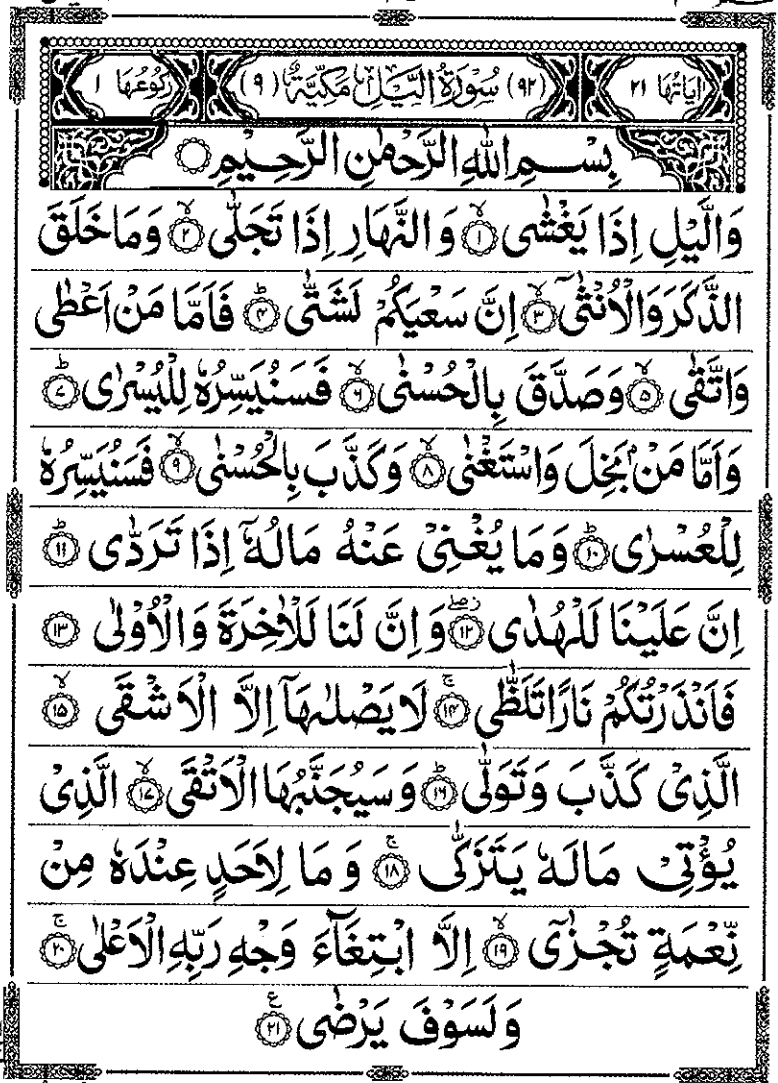 اٰيَاتُهَا ٢١ (٩٢) سُوْرَةُ الَّيْلِ مَكِّيَّةٌ (٩) رُكُوْعُهَا ١
بِسْمِ اللّٰهِ الرَّحْمٰنِ الرَّحِيْمِ
وَالَّيْلِ اِذَا يَغْشٰىۙ۝١ وَالنَّهَارِ اِذَا تَجَلّٰىۙ۝٢ وَمَا خَلَقَ
الذَّكَرَ وَالْاُنْثٰۤىۙ۝٣ اِنَّ سَعْيَكُمْ لَشَتّٰىؕ۝٤ فَاَمَّا مَنْ اَعْطٰى
وَاتَّقٰىۙ۝٥ وَصَدَّقَ بِالْحُسْنٰىۙ۝٦ فَسَنُيَسِّرُهٗ لِلْيُسْرٰىؕ۝٧
وَاَمَّا مَنْۢ بَخِلَ وَاسْتَغْنٰىۙ۝٨ وَكَذَّبَ بِالْحُسْنٰىۙ۝٩ فَسَنُيَسِّرُهٗ
لِلْعُسْرٰىؕ۝١٠ وَمَا يُغْنِيْ عَنْهُ مَالُهٗۤ اِذَا تَرَدّٰىؕ۝١١
اِنَّ عَلَيْنَا لَلْهُدٰىۖ۝١٢ وَاِنَّ لَنَا لَلْاٰخِرَةَ وَالْاُوْلٰى۝١٣
فَاَنْذَرْتُكُمْ نَارًا تَلَظّٰىۚ۝١٤ لَا يَصْلٰىهَاۤ اِلَّا الْاَشْقَىۙ۝١٥
الَّذِيْ كَذَّبَ وَتَوَلّٰىؕ۝١٦ وَسَيُجَنَّبُهَا الْاَتْقَىۙ۝١٧ الَّذِيْ
يُؤْتِيْ مَالَهٗ يَتَزَكّٰىۚ۝١٨ وَمَا لِاَحَدٍ عِنْدَهٗ مِنْ
نِّعْمَةٍ تُجْزٰۤىۙ۝١٩ اِلَّا ابْتِغَآءَ وَجْهِ رَبِّهِ الْاَعْلٰىۚ۝٢٠
وَلَسَوْفَ يَرْضٰى۝٢١ ع